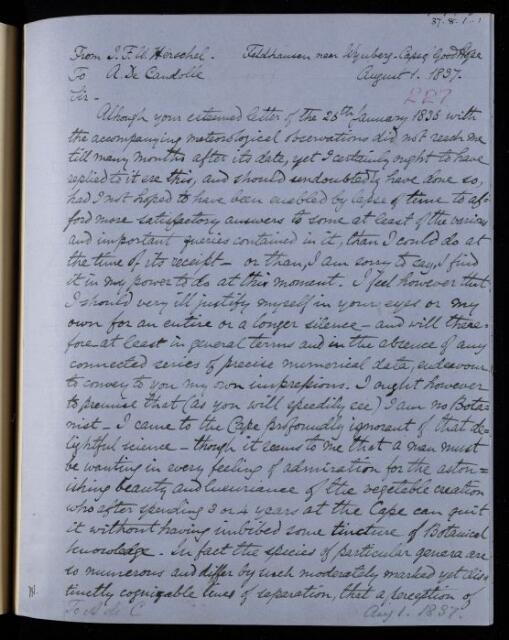 37.8.1.1
From J.F.W. Herschel. Feldhausen near Wynberg. Cape of Good Hope
To A. De Candolle August 1. 1837.
227
Sir -
Although your esteemed letter of the 25th January 1835 with
the accompanying meteorological observations did not reach me
till many months after its date, yet I certainly ought to have
replied to it ere this, and should undoubtedly have done so,
had I not hoped to have been enabled by lapse of time to af-
ford more satisfactory answers to some at least of the various
and important queries contained in it, than I could do at
the time of its receipt - or than, I am sorry to say, I find
it in my power to do at this moment. I feel however that
I should very ill justify myself in your eyes or my
own for an entire or a longer silence - and will there-
fore at least in general terms and in the absence of any
connected series of precise numerical data, endeavour
to convey to you my own impressions. I ought however
to premise that (as you will speedily see) I am no Bota-
nist - I came to the Cape profoundly ignorant of that de-
lightful science - though it seems to me that a man must
be wanting in every feeling of admiration for the aston=
ishing beauty and luxuriance of the vegetable creation
who after spending 3 or 4 years at the Cape can quit
it without having imbibed some tincture of Botanical
knowledge. In fact the species of particular genera are
so numerous and differ by such moderately marked yet dis-
tinctly cognizable lines of separation, that a perception of
To A. de C Aug 1. 1837.